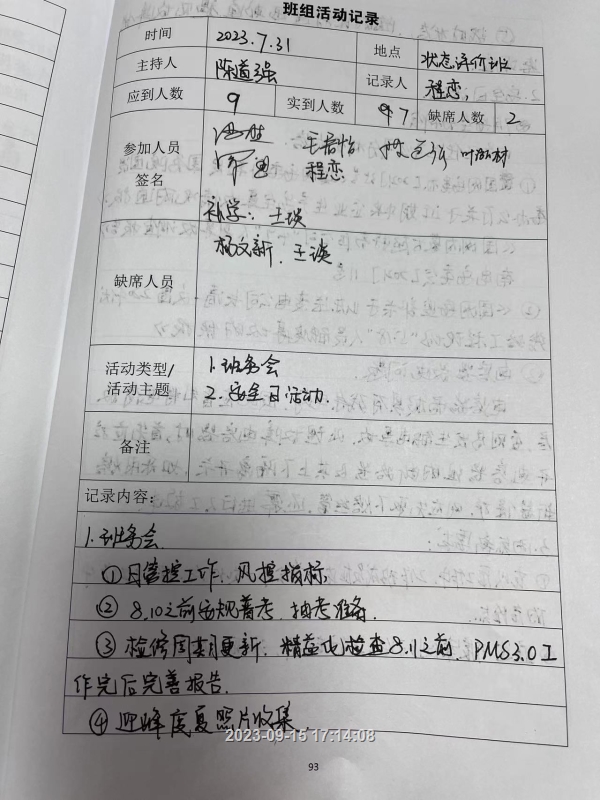 班组活动记录
时间 2023.7.31 地点 状态评价班
主持人 陈道强 记录人 程恋
应到人数 9 实到人数 7 缺席人数 2
参加人员
签名
毛君怡
程恋
补学: 王琰
缺席人员 杨文新、王谈
活动类型/
活动主题
1.班务会
2.安全日活动.
备注
记录内容:
1.班务会
①日管控工作、风控指标,
② 8.10之前安规普考、抽考准备.
③ 检修周期更新、精益化检查8.11之前、PMS3.0工
作完后完善报告.
④ 迎峰度夏照片收集.
2023-09-15 17:14:08
93